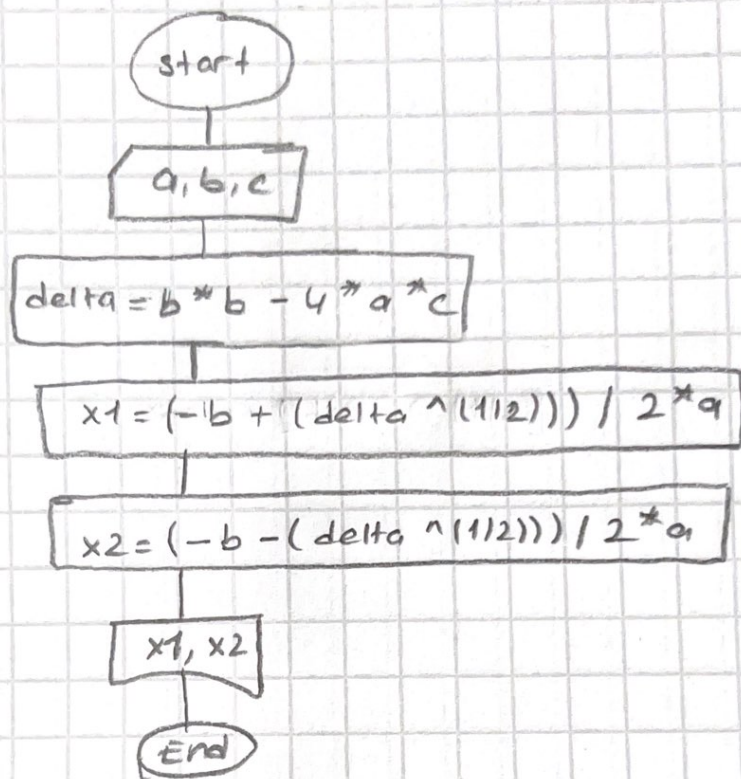 start
a, b, c
delta = b * b - 4 * a * c
x1 = (-b + (delta ^ (1/2))) / 2 * a
x2 = (-b - (delta ^ (1/2))) / 2 * a
x1, x2
End